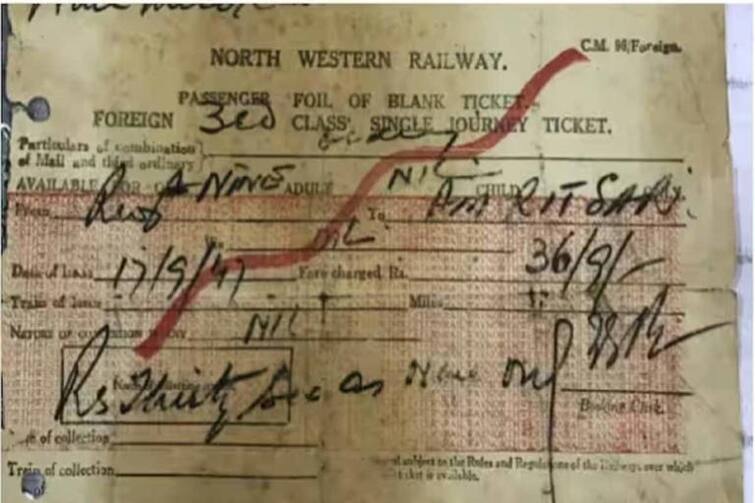 C.M. 96/Foreign.
NORTH WESTERN RAILWAY.
PASSENGER FOIL OF BLANK TICKET.
FOREIGN 3rd CLASS SINGLE JOURNEY TICKET.
Particulars of combination
of Mail and third ordinary
AVAILABLE FOR NINE ADULT NIL CHILD
From To AMRITSAR
NIL
Date of issue 17/9/47 Fare charged Rs. 36/9/-
Train of issue Miles
NATURE OF CONCESSION IF ANY NIL
Rs Thirty Six as Nine only
Booking Clerk.
Date of collection
Train of collection
subject to the Rules and Regulations of the Railways over which
ticket is available.